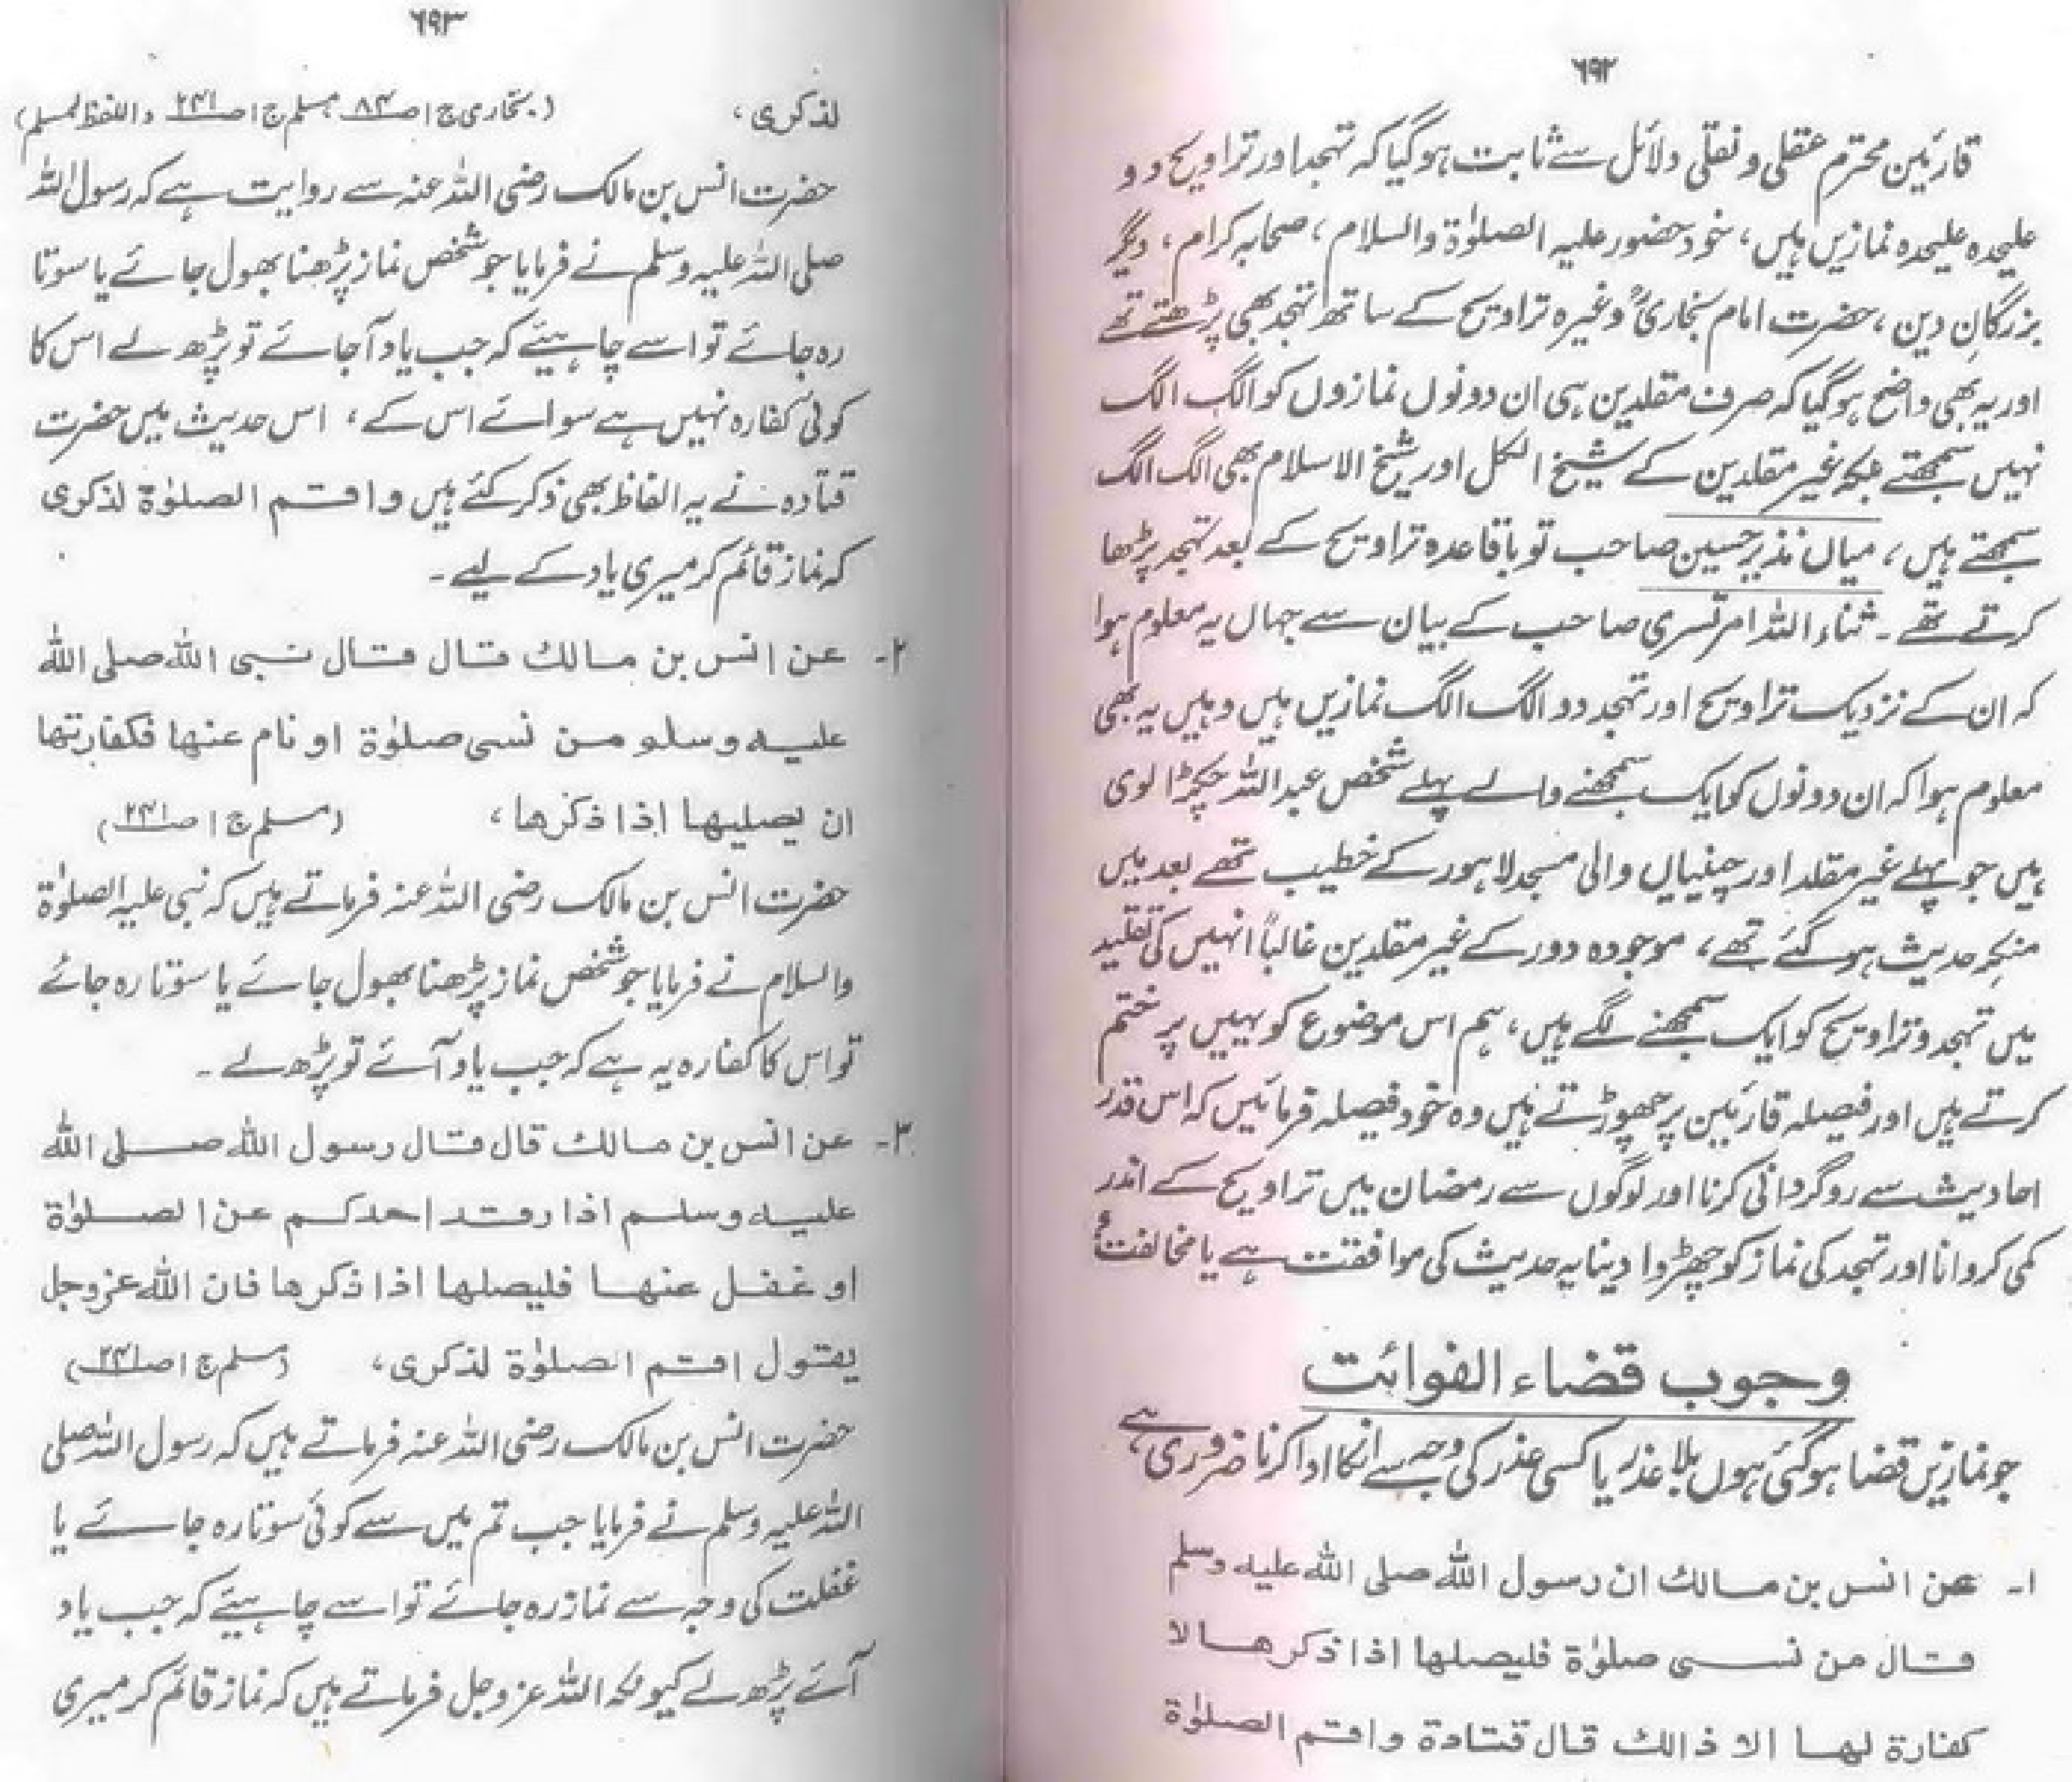 ٦٩٢
قارئین محترم عقلی و نقلی دلائل سے ثابت ہوگیا کہ تہجد اور تراویح دو
علیحدہ علیحدہ نمازیں ہیں، خود حضور علیہ الصلوٰۃ والسلام، صحابہ کرام، دیگر
بزرگانِ دین، حضرت امام بخاریؒ وغیرہ تراویح کے ساتھ تہجد بھی پڑھتے تھے
اور یہ بھی واضح ہوگیا کہ صرف مقلدین ہی ان دونوں نمازوں کو الگ الگ
نہیں سمجھتے بلکہ غیر مقلدین کے شیخ الکل اور شیخ الاسلام بھی الگ الگ
سمجھتے ہیں، میاں نذیر حسین صاحب تو باقاعدہ تراویح کے بعد تہجد پڑھا
کرتے تھے ۔ ثناء اللہ امرتسری صاحب کے بیان سے جہاں یہ معلوم ہوا
کہ ان کے نزدیک تراویح اور تہجد دو الگ الگ نمازیں ہیں وہیں یہ بھی
معلوم ہوا کہ ان دونوں کو ایک سمجھنے والے پہلے شخص عبداللہ چکڑالوی
ہیں جو پہلے غیر مقلد اور چینیاں والی مسجد لاہور کے خطیب تھے بعد میں
منکرِ حدیث ہو گئے تھے، موجودہ دور کے غیر مقلدین غالباً انہیں کی تقلید
میں تہجد و تراویح کو ایک سمجھنے لگے ہیں، ہم اس موضوع کو یہیں پر ختم
کرتے ہیں اور فیصلہ قارئین پر چھوڑتے ہیں وہ خود فیصلہ فرمائیں کہ اس قدر
احادیث سے روگردانی کرنا اور لوگوں سے رمضان میں تراویح کے اندر
کمی کروانا اور تہجد کی نماز کو چھڑوا دینا یہ حدیث کی موافقت ہے یا مخالفت؟
وجوب قضاء الفوائت
جو نمازیں قضا ہوگئی ہوں بلا عذر یا کسی عذر کی وجہ سے انکا ادا کرنا ضروری ہے،
۱۔ عن انس بن مالك ان رسول الله صلی الله علیه وسلم
قال من نسی صلوٰة فلیصلها اذا ذکرها لا
کفارة لها الا ذالك قال قتادة واقم الصلوٰة
٦٩٣
لذکری، (بخاری ج۱ ص۸۴، مسلم ج۱ ص۲۴۱ واللفظ لمسلم)
حضرت انس بن مالک رضی اللہ عنہ سے روایت ہے کہ رسول اللہ
صلی اللہ علیہ وسلم نے فرمایا جو شخص نماز پڑھنا بھول جائے یا سوتا
رہ جائے تو اسے چاہیئے کہ جب یاد آجائے تو پڑھ لے اس کا
کوئی کفارہ نہیں ہے سوائے اس کے، اس حدیث میں حضرت
قتادہ نے یہ الفاظ بھی ذکر کئے ہیں واقم الصلوٰة لذکری
کہ نماز قائم کر میری یاد کے لیے ۔
۲۔ عن انس بن مالك قال قال نبی الله صلی الله
علیه وسلو من نسی صلوٰة او نام عنها فکفارتها
ان یصلیها اذا ذکرها، (مسلم ج۱ ص۲۴۱)
حضرت انس بن مالک رضی اللہ عنہ فرماتے ہیں کہ نبی علیہ الصلوٰة
والسلام نے فرمایا جو شخص نماز پڑھنا بھول جائے یا سوتا رہ جائے
تو اس کا کفارہ یہ ہے کہ جب یاد آئے تو پڑھ لے ۔
۳۔ عن انس بن مالك قال قال رسول الله صلی الله
علیه وسلم اذا رقد احدکم عن الصلوٰة
او غفل عنها فلیصلها اذا ذکرها فان الله عزوجل
یقول اقم الصلوٰة لذکری، (مسلم ج۱ ص۲۴۱)
حضرت انس بن مالک رضی اللہ عنہ فرماتے ہیں کہ رسول اللہ صلی
اللہ علیہ وسلم نے فرمایا جب تم میں سے کوئی سوتا رہ جائے یا
غفلت کی وجہ سے نماز رہ جائے تو اسے چاہیئے کہ جب یاد
آئے پڑھ لے کیونکہ اللہ عزوجل فرماتے ہیں کہ نماز قائم کر میری